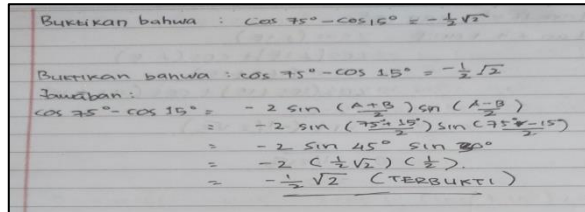 Buktikan bahwa : cos 75° - cos 15° = -½√2
Buktikan bahwa : cos 75° - cos 15° = -½√2
Jawaban :
cos 75° - cos 15° = -2 sin (A+B/2) sin (A-B/2)
= -2 sin (75°+15°/2) sin (75°-15°/2)
= -2 sin 45° sin 30°
= -2 (½√2) (½).
= -½√2 (TERBUKTI)